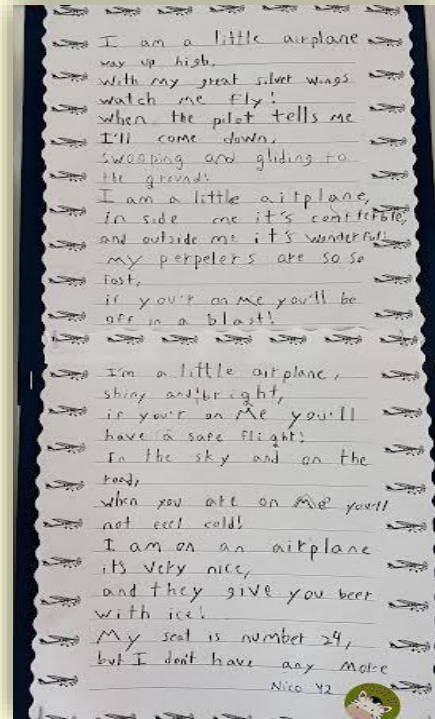 I am a little airplane
way up high,
with my great silver wings
watch me fly!
when the pilot tells me
I'll come down,
swooping and gliding to
the ground!
I am a little airplane,
in side me it's comfterble,
and outside me it's wonderful!
my perpelers are so so
fast,
if your'r on me you'll be
off in a blast!
I'm a little airplane,
shiny and bright,
if your'r on Me you'll
have a safe flight!
In the sky and on the
road,
when you are on Me you'll
not eeel cold!
I am on an airplane
its very nice,
and they give you beer
with ice!
My seat is number 24,
but I don't have any more
Nico Y2